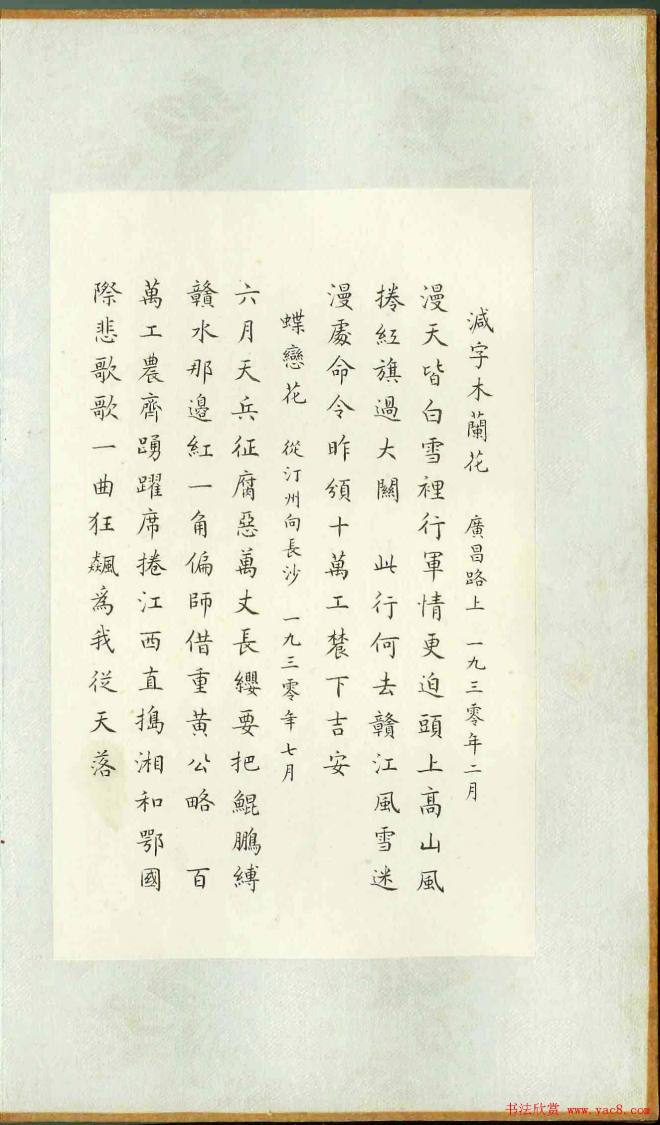 減字木蘭花 廣昌路上 一九三零年二月
漫天皆白雪裡行軍情更迫頭上高山風
捲紅旗過大關 此行何去贛江風雪迷
漫處命令昨頒十萬工農下吉安
蝶戀花 從汀州向長沙 一九三零年七月
六月天兵征腐惡萬丈長纓要把鯤鵬縛
贛水那邊紅一角偏師借重黄公略 百
萬工農齊踴躍席捲江西直搗湘和鄂國
際悲歌歌一曲狂飆為我從天落
书法欣赏 www.yac8.com